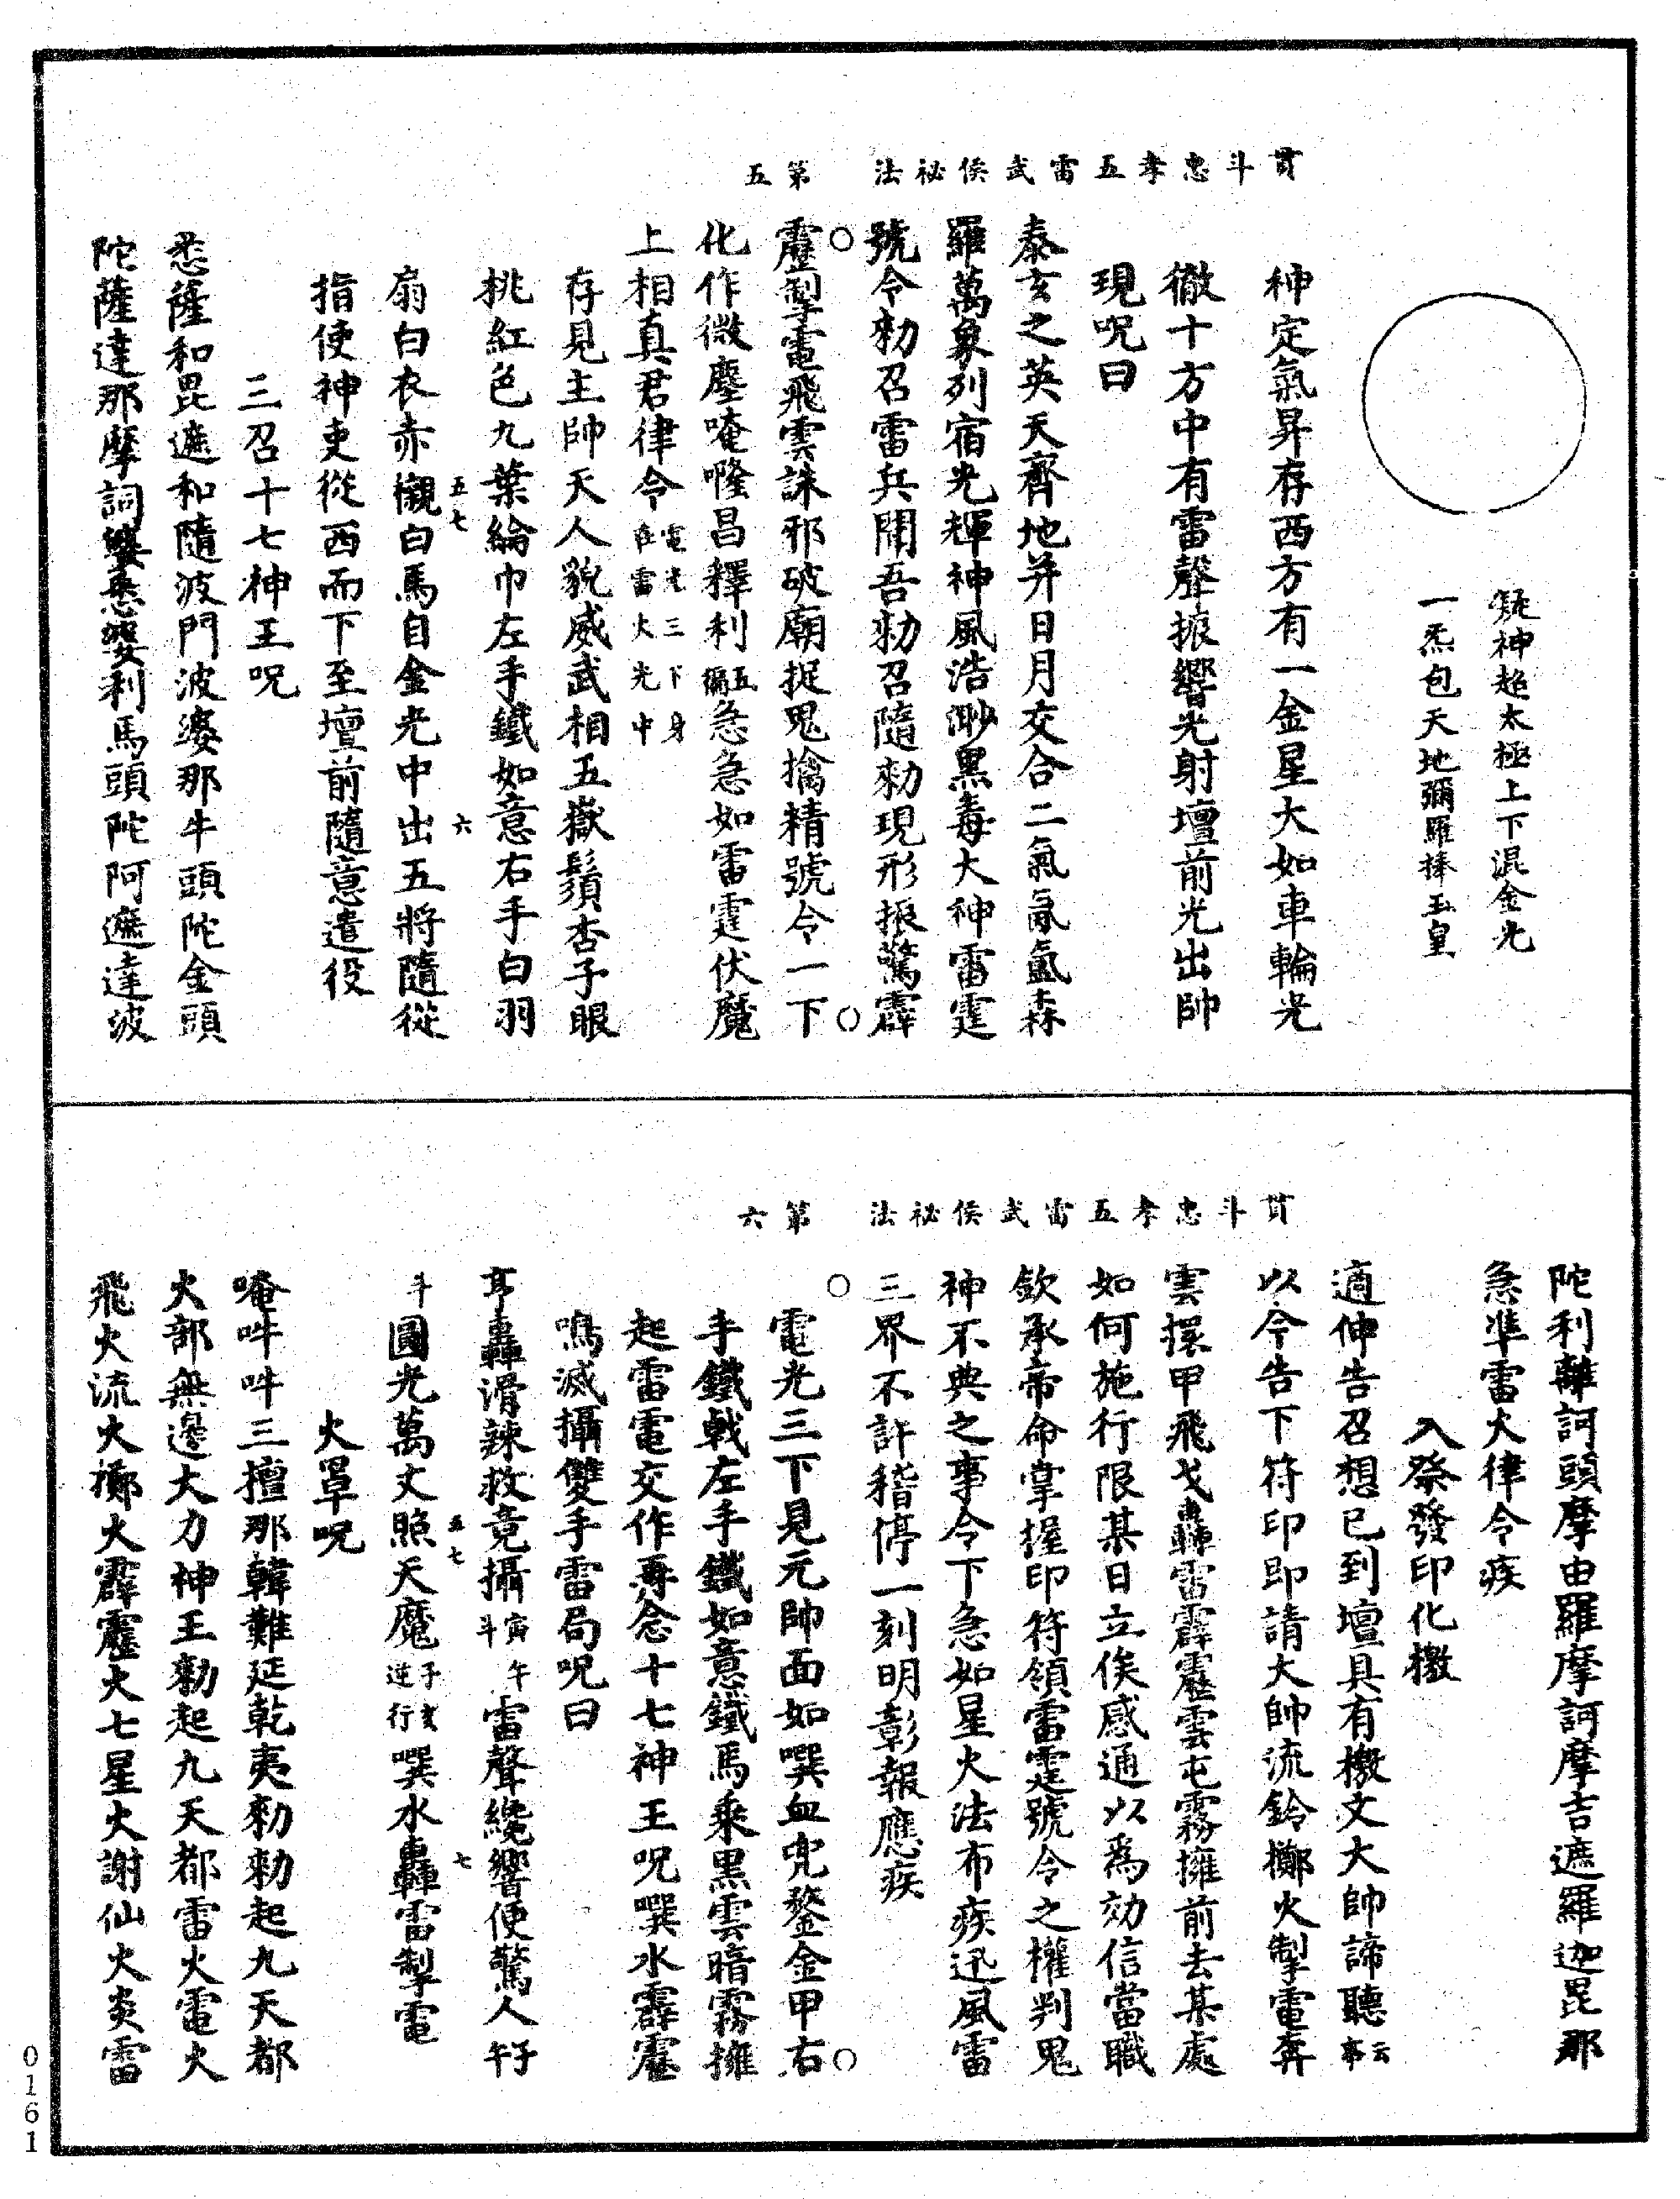 貫斗忠孝五雷武侯祕法　第五
凝神超太極上下混金光
一炁包天地彌羅捧玉皇
神定氣昇存西方有一金星大如車輪光
徹十方中有雷聲振響光射壇前光出帥
現呪曰
泰玄之英天齊地并日月交合二氣氤氳森
羅萬象列宿光輝神風浩渺黑毒大神雷霆
號令勑召雷兵聞吾勑召隨勑現形振驚霹
靂掣電飛雲誅邪破廟捉鬼擒精號令一下
化作微塵唵㘕昌釋利五徧急急如雷霆伏魔
上相真君律令電光三下身在雷火光中
存見主帥天人貌威武相五嶽鬚杏子眼
桃紅色九葉綸巾左手鐵如意右手白羽
扇白衣赤襯白馬自金光中出五將隨從
五七
六
指使神吏從西而下至壇前隨意遣役
三召十七神王呪
悉薩和毘遮和隨波門波婆那牛頭陀金頭
陀薩達那摩訶婆悉婆利馬頭陀阿遮達波
貫斗忠孝五雷武侯祕法　第六
陀利韓訶頭摩由羅摩訶摩吉遮羅迦毘那
急準雷火律令疾
入祭發印化檄
適伸告召想已到壇具有檄文大帥諦聽云事
以今告下符印即請大帥流鈴擲火掣電奔
雲擐甲飛戈轟雷霹靂雲屯霧擁前去某處
如何施行限某日立俟感通以為効信當職
欽承帝命掌握印符領雷霆號令之權判鬼
神不典之事令下急如星火法布疾迅風雷
三界不許稽停一刻明彰報應疾
電光三下見元帥面如噀血兜鍪金甲右
手鐵戟左手鐵如意鐵馬乘黑雲暗霧擁
起雷電交作再念十七神王呪噀水霹靂
鳴滅攝雙手雷局呪曰
亨轟滑辣救竟攝寅午斗雷聲纔響便驚人子午
斗圓光萬丈照天魔子亥逆行噀水轟雷掣電
五七
七
火罩呪
唵吽吽三擅那韓難延乾夷勑勑起九天都
火部無邊大力神王勑起九天都雷火電火
飛火流火擲火霹靂火七星火謝仙火炎雷
0161